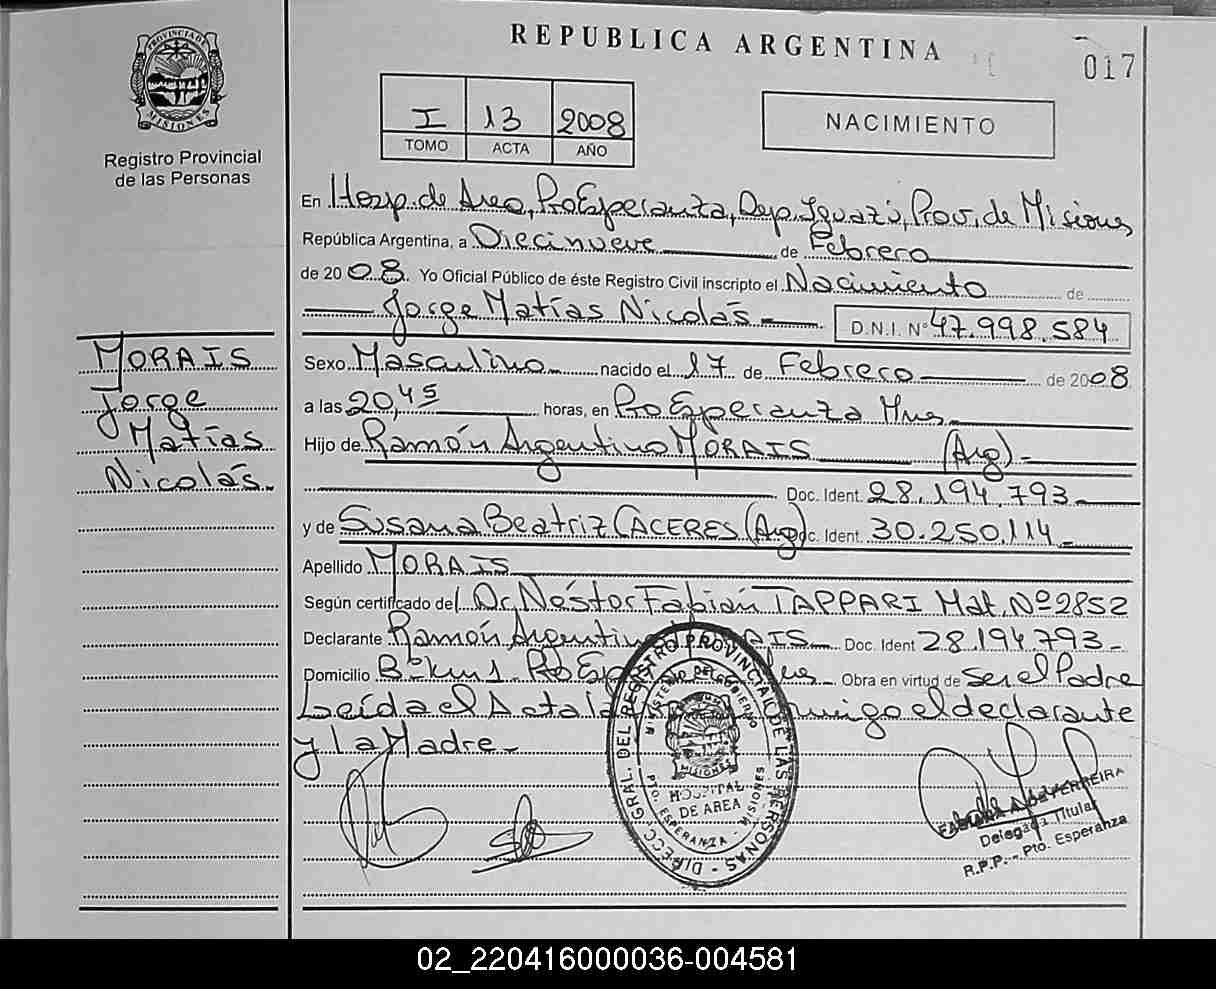 REPUBLICA ARGENTINA
017
PROVINCIA DE
MISIONES
Registro Provincial
de las Personas
I 13 2008
TOMO ACTA AÑO
NACIMIENTO
En Hosp. de Area, Pto Esperanza, Dep. Iguazú, Prov. de Misiones
República Argentina, a Diecinueve de Febrero
de 2008. Yo Oficial Público de éste Registro Civil inscripto el Nacimiento de
Jorge Matías Nicolás D.N.I. Nº 47.998.584
MORAIS
Jorge
Matías
Nicolás.
Sexo Masculino nacido el 17 de Febrero de 2008
a las 20,45 horas, en Pto Esperanza Mnes
Hijo de Ramón Argentino MORAIS (Arg)
Doc. Ident. 28.194.793
y de Susana Beatriz CACERES (Arg) Doc. Ident. 30.250.114
Apellido MORAIS
Según certificado del Dr. Néstor Fabián TAPPARI Mat. Nº 2852
Declarante Ramón Argentino MORAIS Doc. Ident 28.194.793
Domicilio Bº km 1 Pto Obra en virtud de ser el Padre
Leída el Acta la el declarante
y la Madre
DIRECC. GRAL. DEL REGISTRO PROVINCIAL DE LAS PERSONAS
MINISTERIO DEL GOBIERNO
MISIONES
HOSPITAL
DE AREA
PTO. ESPERANZA - MISIONES
FERREIRA
Delegada Titular
R.P.P. - Pto. Esperanza
02_220416000036-004581